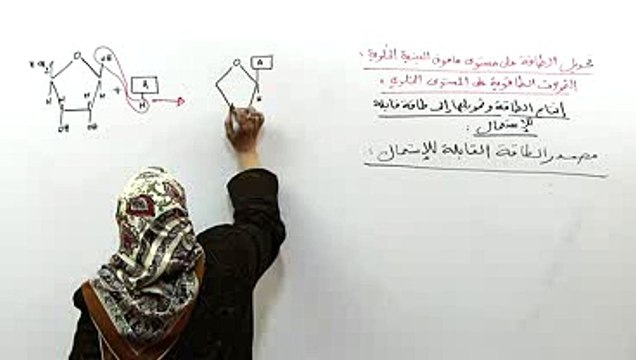 تحويل الطاقة على مستوى ما فوق البنية الخلوية :
التحولات الطاقوية على المستوى الخلوي :
إنتاج الطاقة وتحويلها إلى طاقة قابلة
للإستعمال :
مصدر الطاقة القابلة للإستعمال :
O
OH
A
H
+
O
A
H
H
H
H
OH
OH